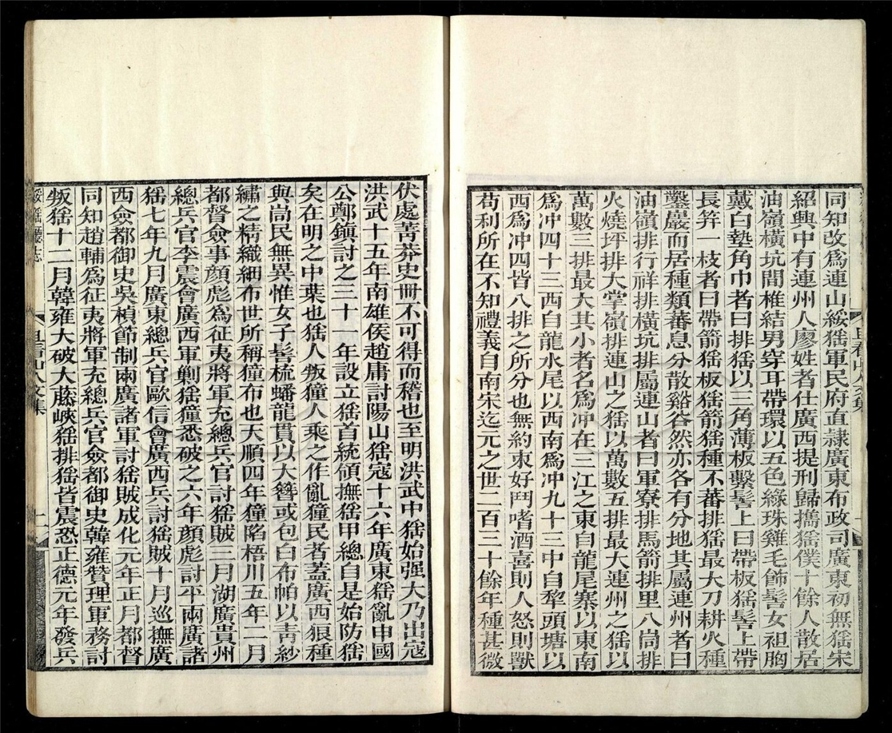 同知改爲連山綏猺軍民府直隸廣東布政司廣東初無猺宋
紹興中有連州人廖姓者仕廣西提刑歸攜猺僕十餘人散居
油嶺橫坑間椎結男穿耳帶環以五色綠珠雞毛飾髻女袒胸
戴白墊角巾者曰排猺以三角薄板繫髻上曰帶板猺髻上帶
長筓一枝者曰帶箭猺板猺箭猺種不蕃排猺最大刀耕火種
鑿巖而居種類蕃息分散谿谷然亦各有分地其屬連州者曰
油嶺排行祥排橫坑排屬連山者曰軍寮排馬箭排里八峝排
火燒坪排大掌嶺排連山之猺以萬數五排最大連州之猺以
萬數三排最大其小者名爲冲在三江之東自龍尾寨以東南
爲冲四十三西自龍水尾以西南爲冲九十三中自犂頭塘以
西爲冲四皆八排之所分也無約束好鬥嗜酒喜則人怒則獸
苟利所在不知禮義自南宋迄元之世二百三十餘年種甚微
伏處菁莽史冊不可得而稽也至明洪武中猺始强大乃出寇
洪武十五年南雄侯趙庸討陽山猺寇十六年廣東猺亂申國
公鄭鎮討之三十一年設立猺首統領撫猺甲總自是始防猺
矣在明之中葉也猺人叛獞人乘之作亂獞民者蓋廣西狼種
與峝民無異惟女子髻梳蟠龍貫以大簪或包白布帕以靑紗
繡之精織細布世所稱獞布也大順四年獞陷梧川五年二月
都督僉事顏彪爲征夷將軍充總兵官討猺賊三月湖廣貴州
總兵官李震會廣西軍剿猺獞悉破之六年顏彪討平兩廣諸
猺七年九月廣東總兵官歐信會廣西兵討猺賊十月巡撫廣
西僉都御史吳楨節制兩廣諸軍討猺賊成化元年正月都督
同知趙輔爲征夷將軍充總兵官僉都御史韓雍贊理軍務討
叛猺十二月韓雍大破大藤峽猺排猺皆震恐正德元年發兵